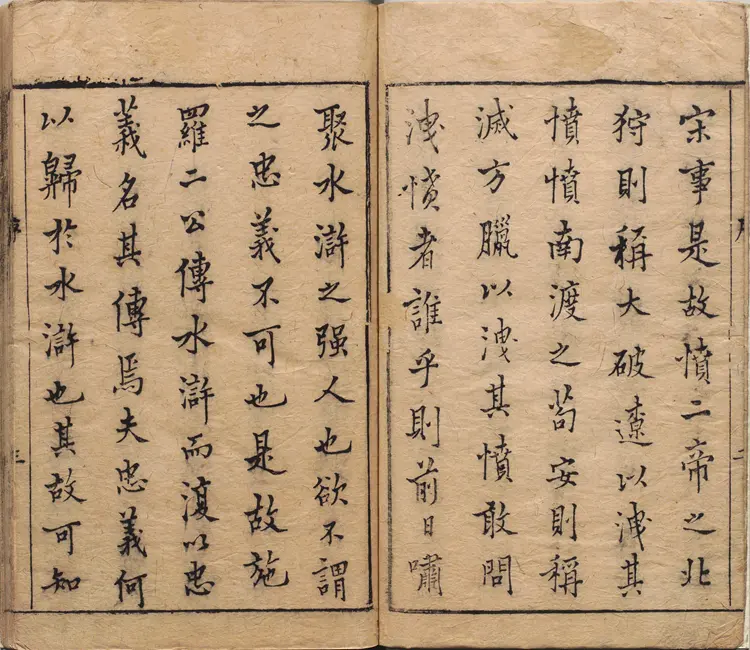 宋事是故憤二帝之北
狩則稱大破遼以洩其
憤憤南渡之苟安則稱
滅方臘以洩其憤敢問
洩憤者誰乎則前日嘯
聚水滸之强人也欲不謂
之忠義不可也是故施
羅二公傳水滸而復以忠
義名其傳焉夫忠義何
以歸於水滸也其故可知
序
三
二